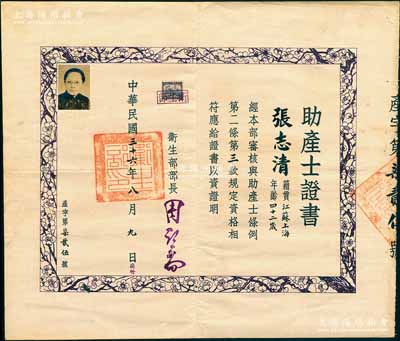 助產士證書
張志清
籍貫江蘇上海
年齡四十二歲
經本部審核與助產士條例
第二條第三款規定資格相
符應給證書以資證明
衛生部部長
周詒春
中華民國三十六年八月九日
產字第柒貳伍號
產字第柒貳伍號